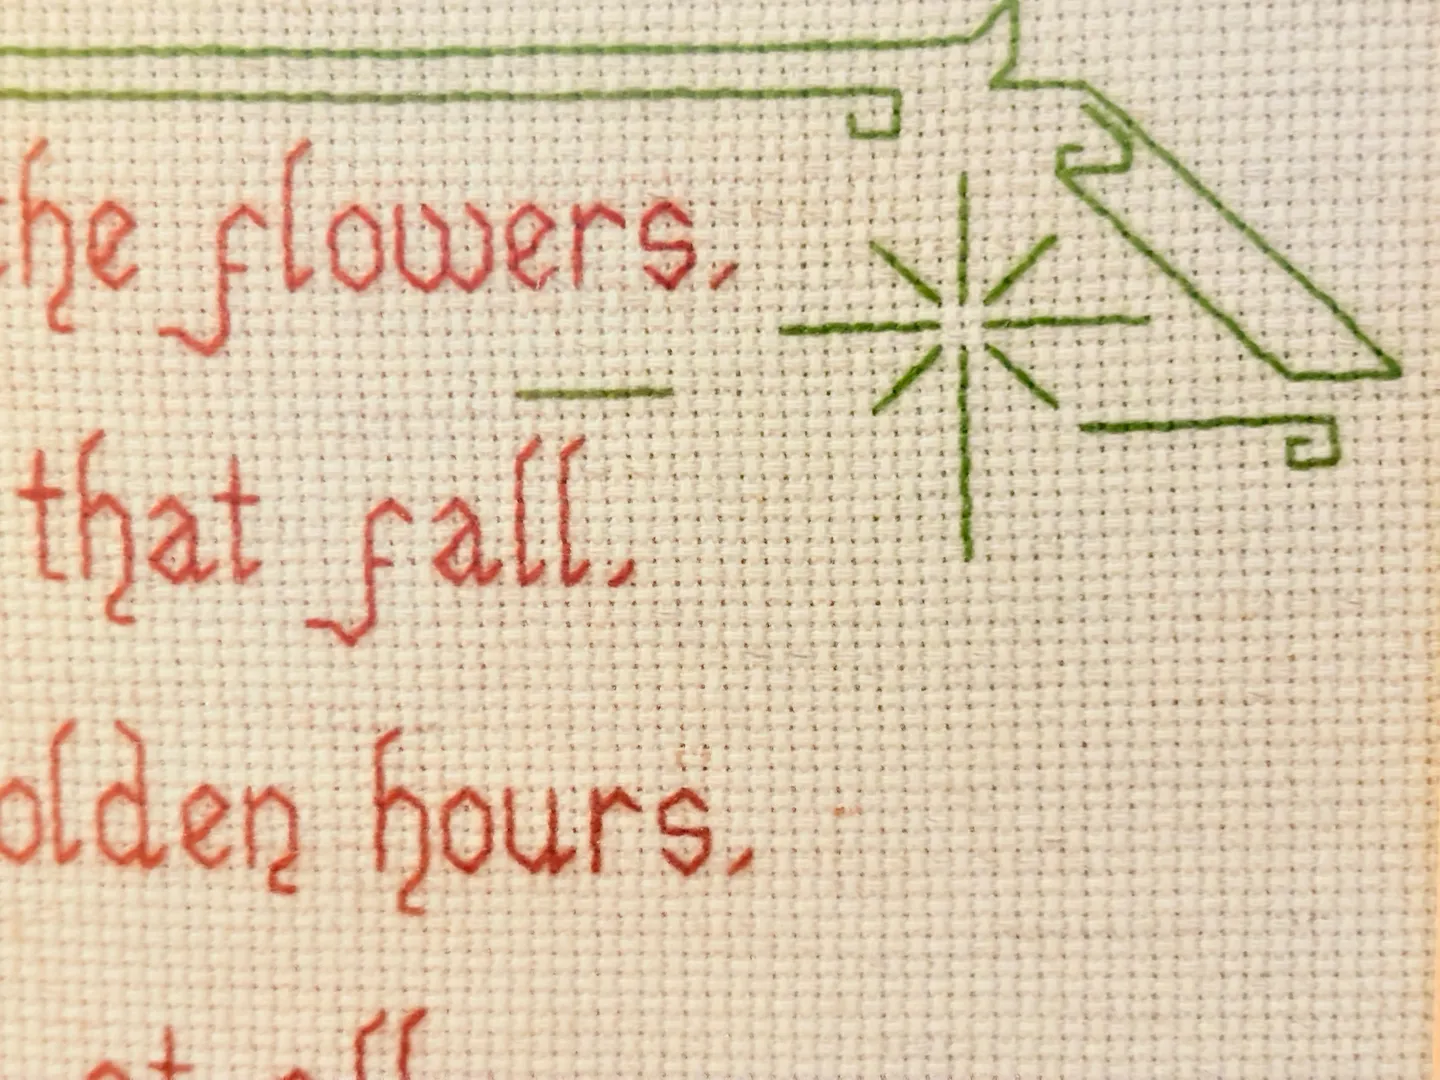 he flowers,
that fall,
olden hours,
at all